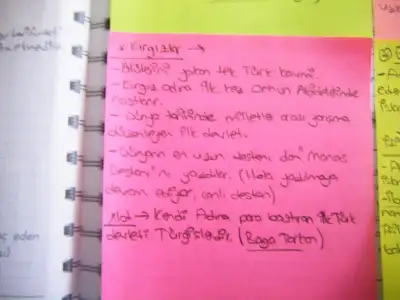 * Kırgızlar →
- Ölüsünü yakan tek Türk kavmi.
- Kırgız adına ilk kez Orhun Abidelerinde rastlanır.
- Dünya tarihinde milletler arası yarışma
düzenleyen ilk devlet.
- Dünyanın en uzun destanı olan Manas
Destanı'nı yazdılar. (Hala yazılmaya
devam ediyor, canlı destan)
Not → Kendi Adına para bastıran ilk Türk
devleti Türgişlerdir. (Baga Tarkan)
eden